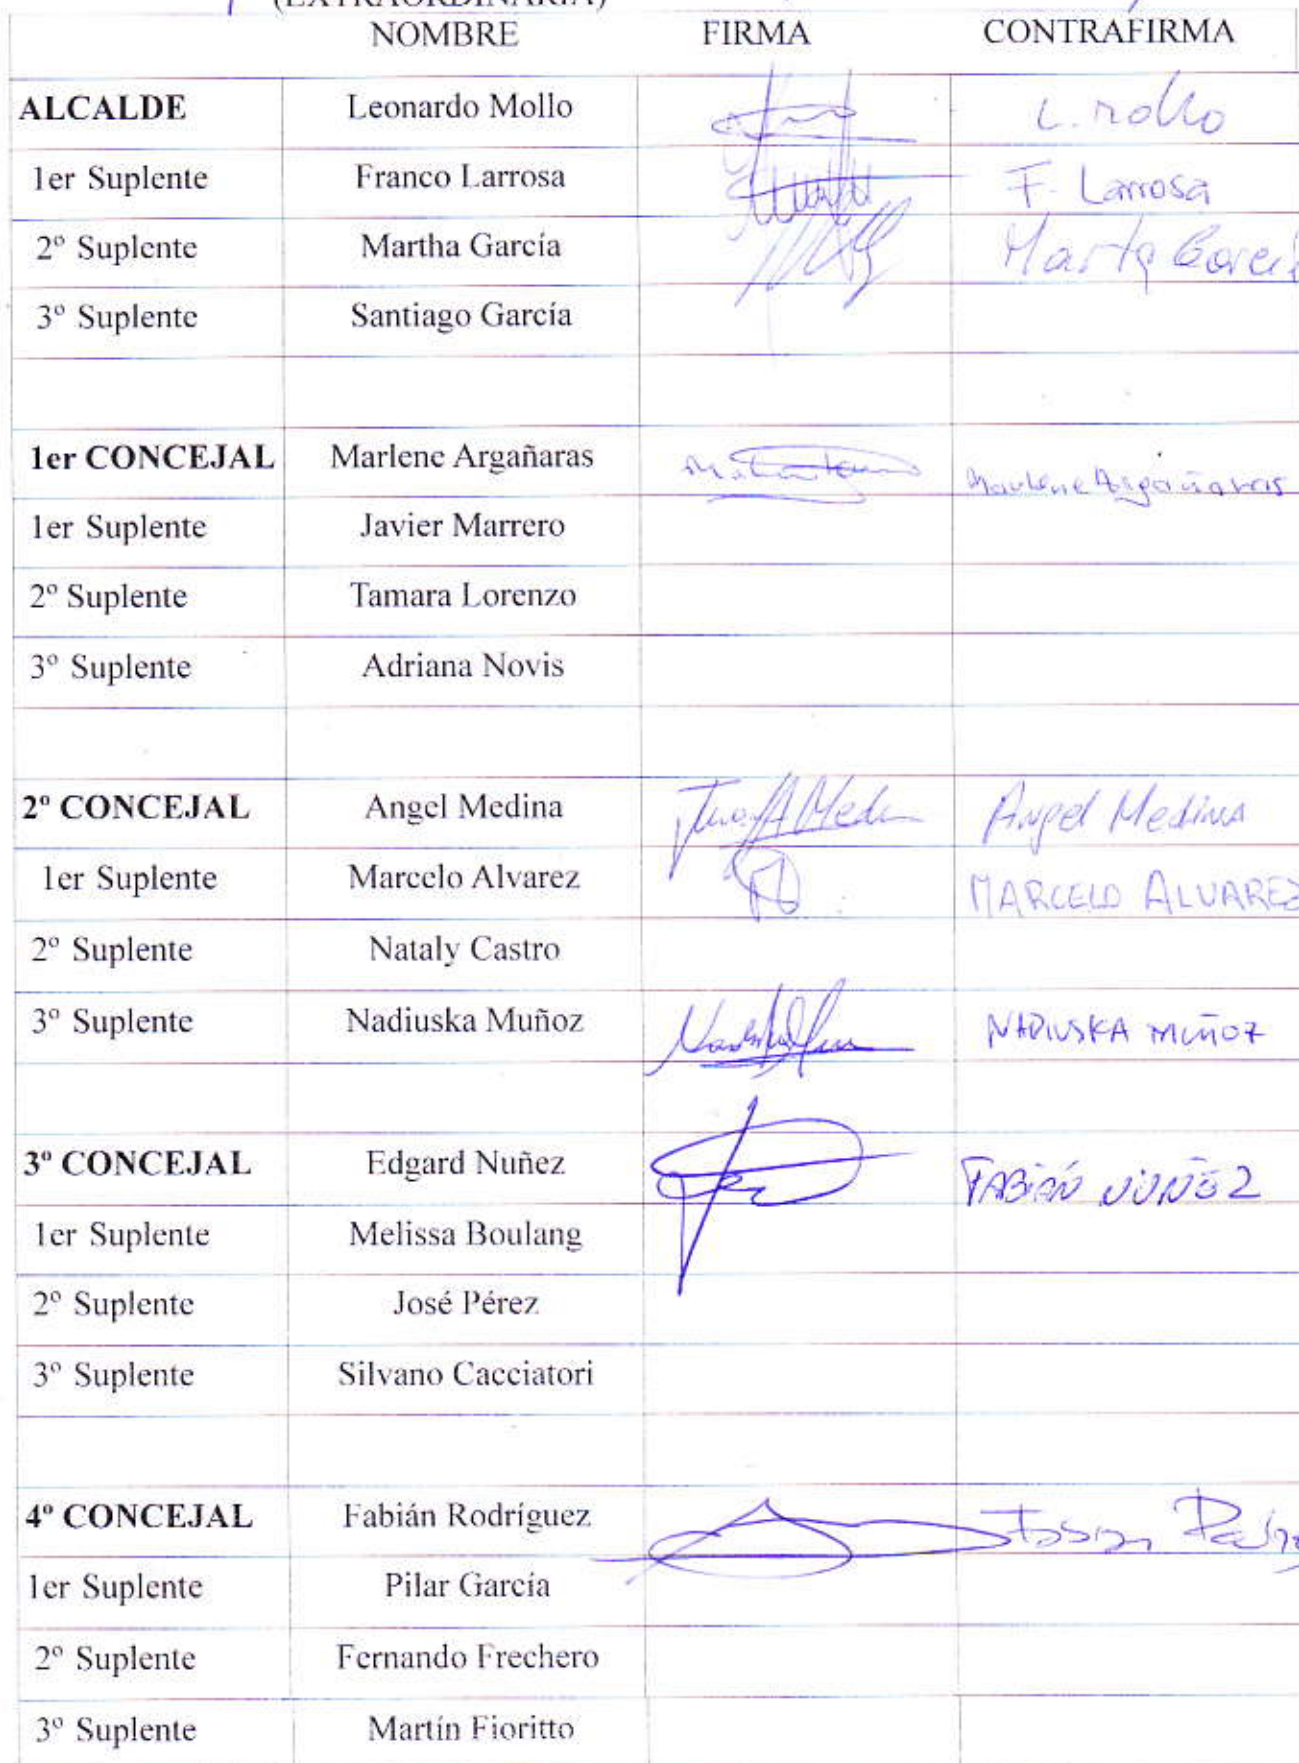 (EXTRAORDINARIA)
NOMBRE FIRMA CONTRAFIRMA
ALCALDE Leonardo Mollo L. Mollo
1er Suplente Franco Larrosa F. Larrosa
2º Suplente Martha García Marta García
3º Suplente Santiago García
1er CONCEJAL Marlene Argañaras Marlene Argañaras
1er Suplente Javier Marrero
2º Suplente Tamara Lorenzo
3º Suplente Adriana Novis
2º CONCEJAL Angel Medina Angel Medina
1er Suplente Marcelo Alvarez MARCELO ALVAREZ
2º Suplente Nataly Castro
3º Suplente Nadiuska Muñoz NADIUSKA MUÑOZ
3º CONCEJAL Edgard Nuñez FABIÁN NUÑEZ
1er Suplente Melissa Boulang
2º Suplente José Pérez
3º Suplente Silvano Cacciatori
4º CONCEJAL Fabián Rodríguez Fabian
1er Suplente Pilar García
2º Suplente Fernando Frechero
3º Suplente Martín Fioritto